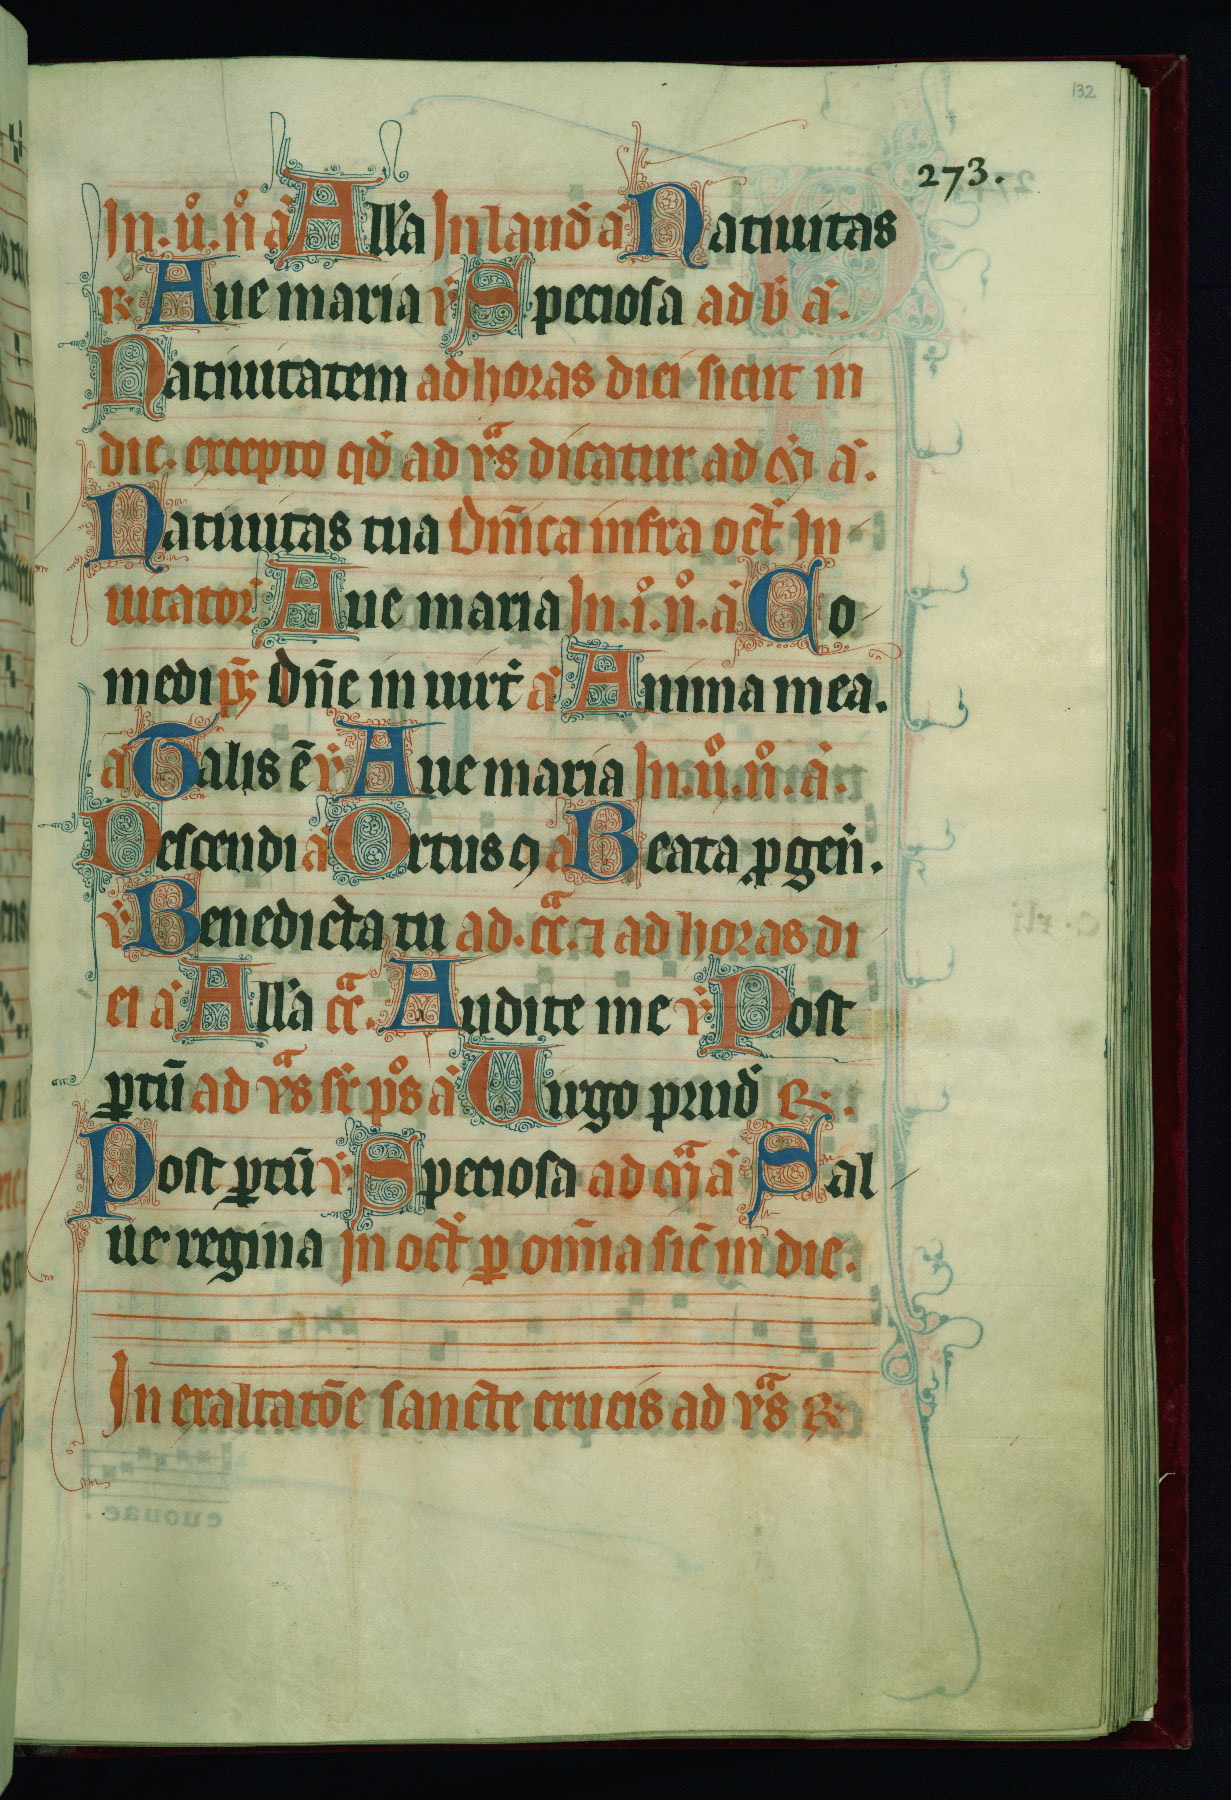 132
273.
In .ij. n̊ añ Alla In laud̄ añ Natiuitas
℟ Aue maria v̄ Speciosa ad b̄ añ.
Natiuitatem ad horas diei sicut in
die. excepto qd̄ ad vᵃs dicatur ad m̄ añ.
Natiuitas tua Dn̄ica infra oct̄ In-
uitator̄ Aue maria In .i. n̊. añ Co
medi p̄s Dn̄e in uirt̄ añ Anima mea.
añ Talis ē v̄ Aue maria In .ij. n̊. añ.
Descendi añ Ortus ꝯ añ Beata ꝓgen̄.
v̄ Benedicta tu ad .cᵃ. ⁊ ad horas di
ei añ Alla cᵃ. Audite me v̄ Post
ꝑtū ad vᵃs sr̄ pᵒs añ Uirgo prud̄ ℟.
Post ꝑtū v̄ Speciosa ad m̄ añ Sal
ue regina In oct̄ ꝑ om̄ia sic̄ in die.
In exaltatōe sancte crucis ad vᵃs ℟